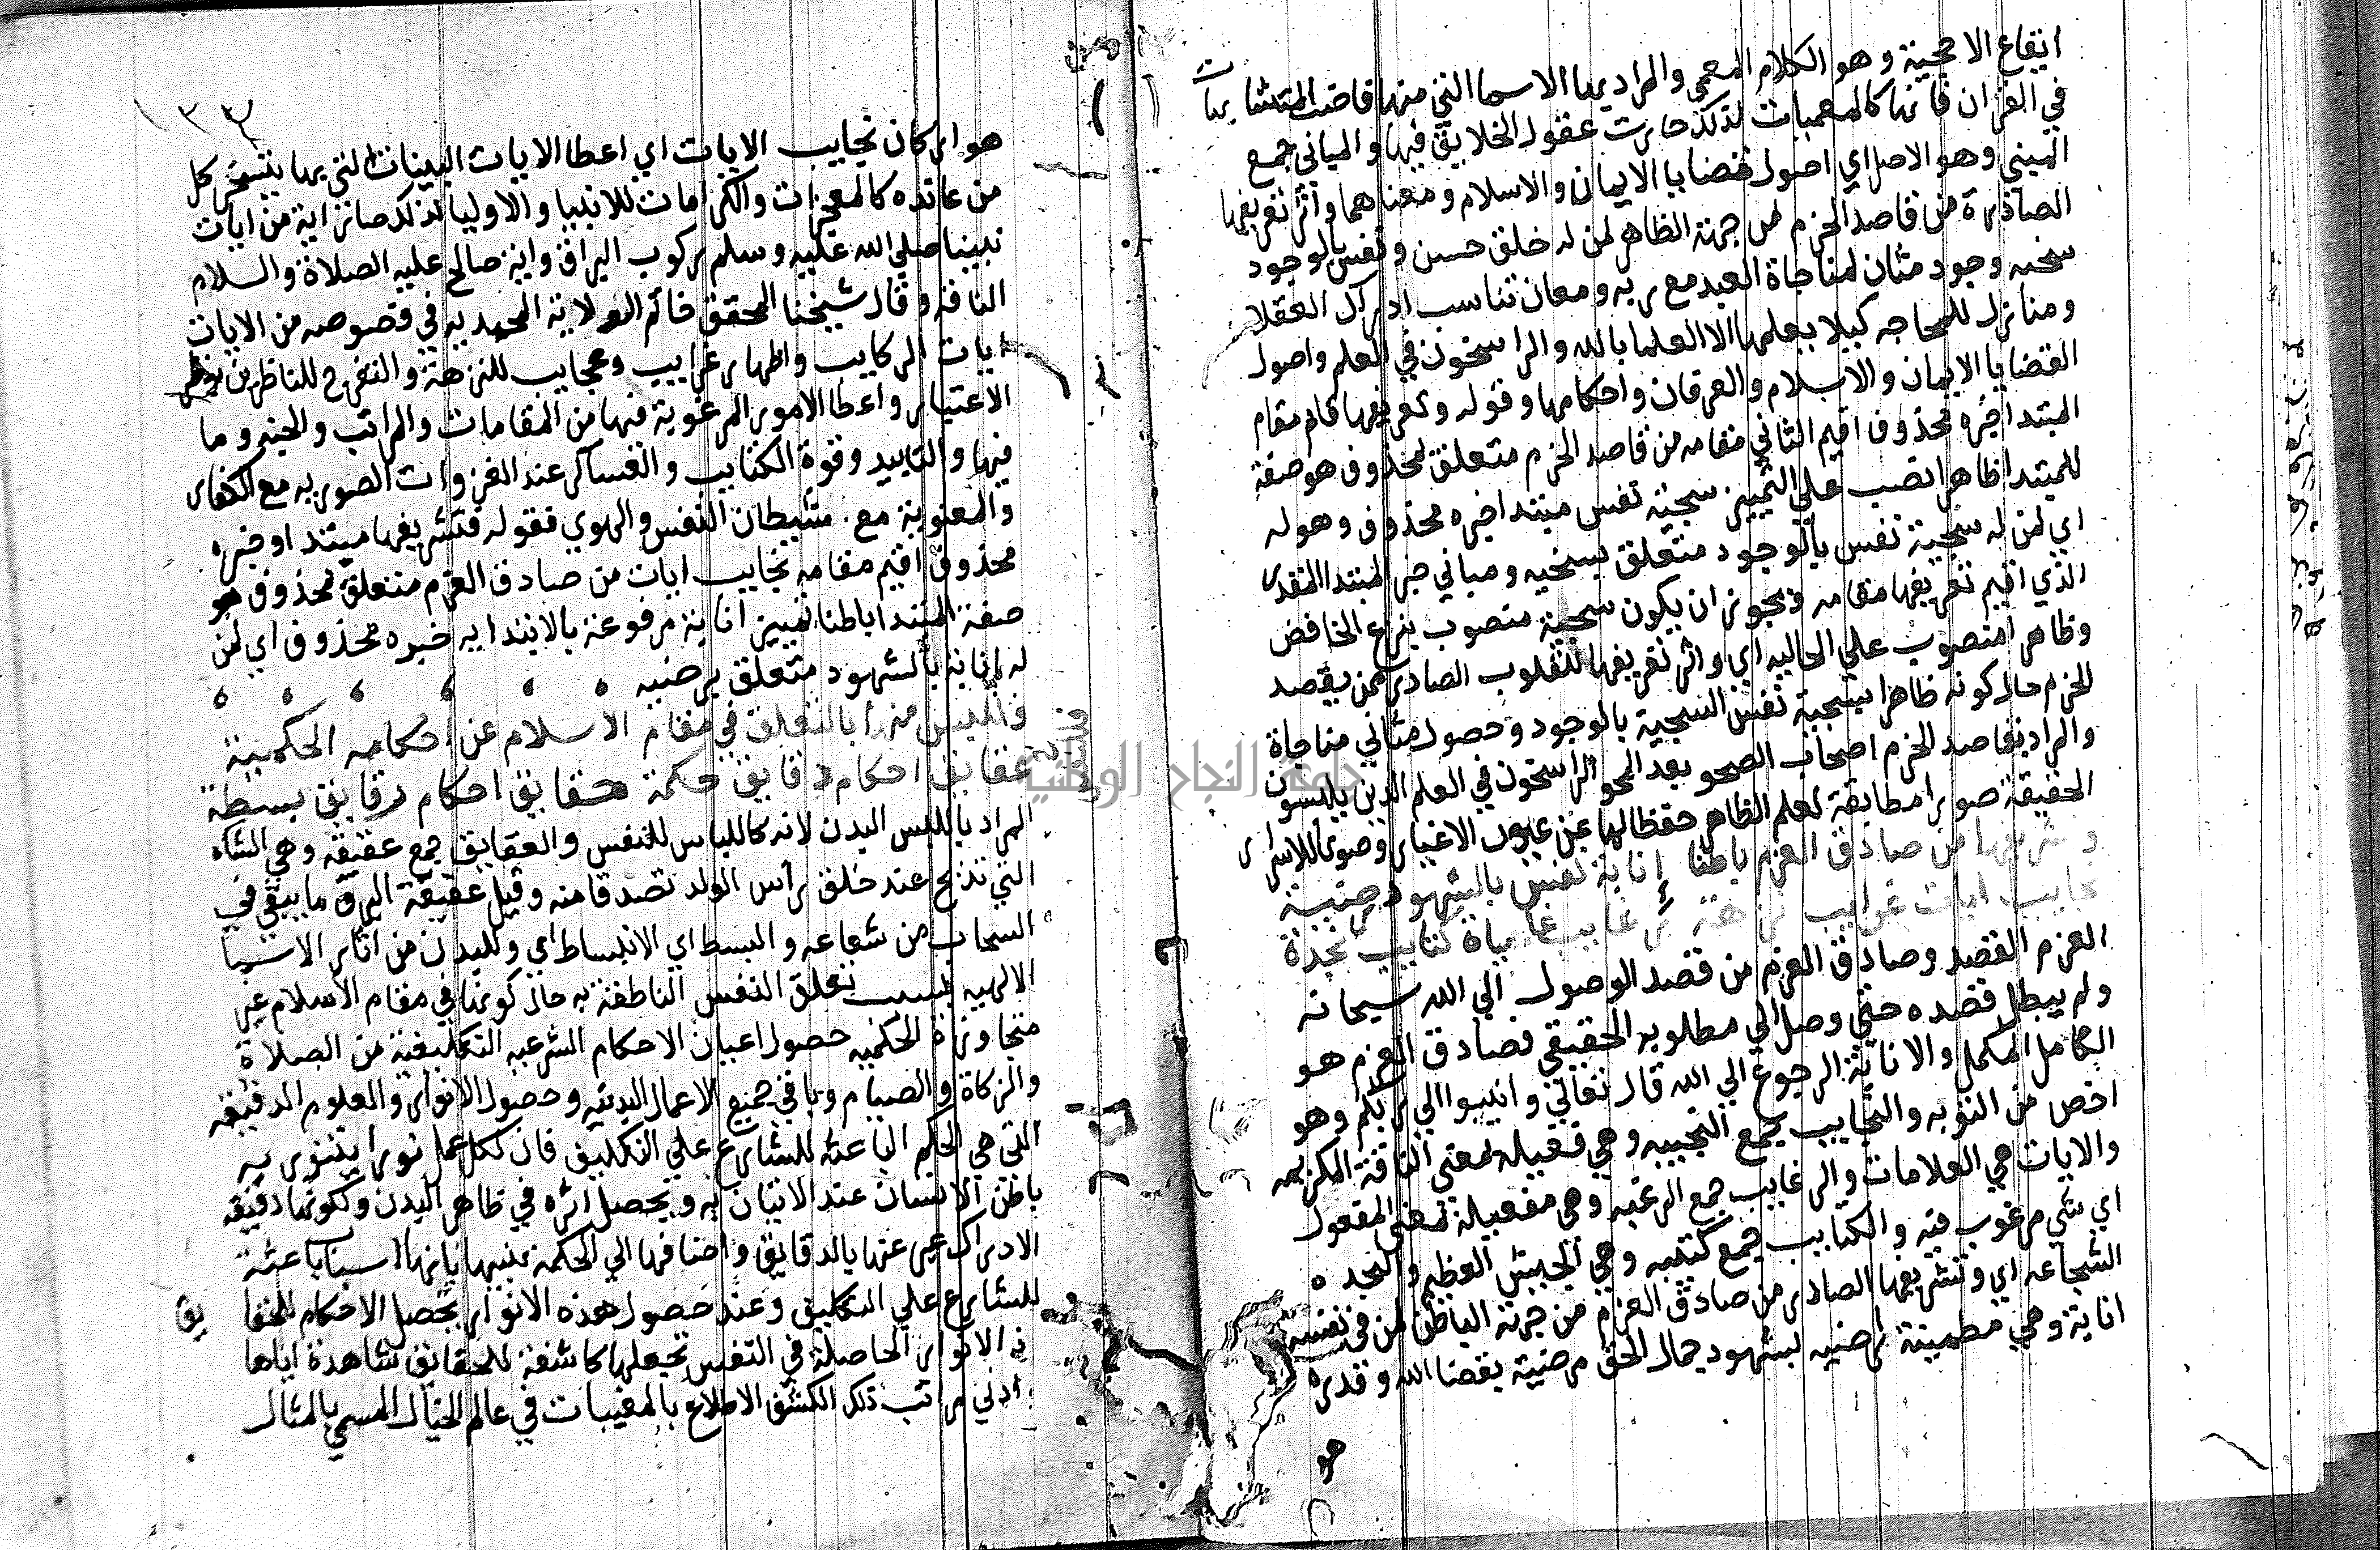 ايقاع الاحجية وهو الكلام المعمى والمراد بها الاسما التي منها قاضت المتشابهات
في القران فانها كالمعميات لذلك حارت عقول الخلايق فيها والمباني جمع
المبني وهو الاصل اي اصول قضايا الايمان والاسلام ومعناهما واثر تعريفها
الصادرة من قاصد الحزم من جهة الظاهر لمن له خلق حسن ونفس بالوجود
سخيه وجود مثان لمناجاة العبد مع ربه ومعان تناسب ادراك العقلا
ومنازل للمحاجه كيلا يعلمها الا العلما بالله والراسخون في العلم واصول
القضايا الايمان والاسلام والعرفان واحكامها وقوله وتعريفها قام مقام
المبتدا خبره محذوف اقيم الثاني مقامه من قاصد الحزم متعلق لمحذوف هو صفة
للمبتدا ظاهرا نصب علي التمييز سجية نفس مبتدا خبره محذوف وهو له
اي لمن له سجية نفس بالوجود متعلق بسخيه ومباني خبر المبتدا المقدر
الذي اقيم تعريفها مقامه ويجوز ان يكون سجية منصوب بنزع الخافض
وظاهرا منصوب علي الحاليه اي واثر تعريفها للقلوب الصادر ممن يقصد
الحزم حال كونه ظاهرا بسجية نفس السجية بالوجود وحصول مثاني مناجاة
والمراد بقاصد الحزم اصحاب الصحو بعد المحو الراسخون في العلم الذين يلبسون
الحقيقة صورا مطابقة لعلم الظاهر حفظا لها عن عيون الاغيار وصونا للاسرار
وتشريفها من صادق العزم باطنا انابة نفس بالشهود رضية
نجايب ايات غرايب نزهة رغايب غايات كتايب نجدة
العزم القصد وصادق العزم من قصد الوصول الي الله سبحانه
ولم يبطل قصده حتي وصل الي مطلوبه الحقيقي فصادق العزم هو
الكامل المكمل والانابة الرجوع الي الله قال تعالي وانيبوا الي ربكم وهو
اخص من التوبه والنجايب جمع النجيبه وهي فعيله بمعني الناقة المكرمه
والايات هي العلامات والرغايب جمع الرغبه وهي مفعيلة بمعني المفعول
اي شي مرغوب فيه والكتايب جمع كتيبه وهي الجيش العظيم والنجده
الشجاعه اي وتشريفها الصادر من صادق العزم من جهة الباطن لمن في نفسه
انابة وهي مطمينة راضيه لشهود جمال الحق مرضية بقضا الله وقدره
هو
٣٢
هو اركان نجايب الايات اي اعطا الايات البينات التي بها يتسخر كل
من عانده كالمعجزات والكرامات للانبيا والاوليا لذلك صار اية من ايات
نبينا صلي الله عليه وسلم ركوب البراق واية صالح عليه الصلاة والسلام
الناقه وقال شيخنا المحقق خاتم الولاية المحمديه في فصوصه من الايات
ايات الركايب واظهار غرايب وعجايب للنزهة والتفرج للناظرين بنظر
الاعتبار واعطا الامور المرغوبة فيها من المقامات والمراتب والجنة وما
فيها والتاييد وقوة الكتايب والعساكر عند الغزوات الصوريه مع الكفار
والمعنوية مع شيطان النفس والهوي فقوله فتشريفها مبتدا وخبره
محذوف اقيم مقامه نجايب ايات من صادق العزم متعلق لمحذوف هو
صفة المبتدا باطنا تمييز انابة مرفوعة بالابتدا به خبره محذوف اي لمن
له انابة بالشهود متعلق برضيه
وللبس منها بالتعلق في مقام الاسلام عن احكامه الحكمية
عقايق احكام دقايق حكمة حقايق احكام رقايق بسطة
المراد باللبس البدن لانه كاللباس للنفس والعقايق جمع عقيقه وهي الشاه
التي تذبح عند خلق راس الولد تصدقا منه وقيل عقيقة البرق ما يبقي في
السحاب من شعاعه والبسط اي الانبساط اي وللبدن من اثار الاسما
الالهيه بسبب تعلق النفس الناطقة به حال كونها في مقام الاسلام غير
متجاوزة الحكميه حصول اعيان الاحكام الشرعيه التكليفية من الصلاة
والزكاة والصيام وباقي جميع الاعمال البدنيه وحصول الانوار والعلوم الدقيقه
التي هي الحكم الباعثه للشارع علي التكليف فان لكل عمل نورا يتنور به
باطن الانسان عند الاتيان به ويحصل اثره في ظاهر البدن ولكونها دقيقه
الادراك عبر عنها بالدقايق واضافها الي الحكمة تنبيها بانها اسبابا عثة
للشارع علي التكليف وعند حصول هذه الانوار يحصل الاحكام للحقايق
الانوار الحاصلة في النفس تجعلها كاشفة للحقايق شاهدة اياها
ادني مراتب ذلك الكشف الاطلاع بالمغيبات في عالم الخيال المسمي بالمثال
جامعة النجاح الوطنية